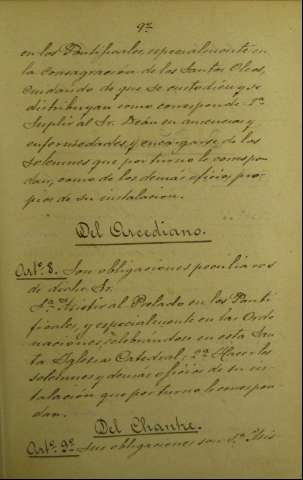 9.
en los Pontificales, especialmente en
la Consagracion de los Santos Oleos,
cuidando de que se custodien y se
distribuyan como corresponde. 5ª
Suplir al Sr. Deán en ausencias y
enfermedades, y encargarse de los
solemnes que por turno le correspon
dan, como de los demás oficios pro
pios de su instalacion.
Del Arcediano.
Artº 8. Son obligaciones peculiares
de dicho Sr.
1ª Asistir al Prelado en los Ponti
ficales, y especialmente en las Orde
naciones, celebrandose en esta San
ta Iglesia Catedral; 2ª Hacer los
solemnes y demás oficios de su ins
talacion que por turno le correspon
dan.
Del Chantre.
Artº 9º Sus obligaciones son: 1ª